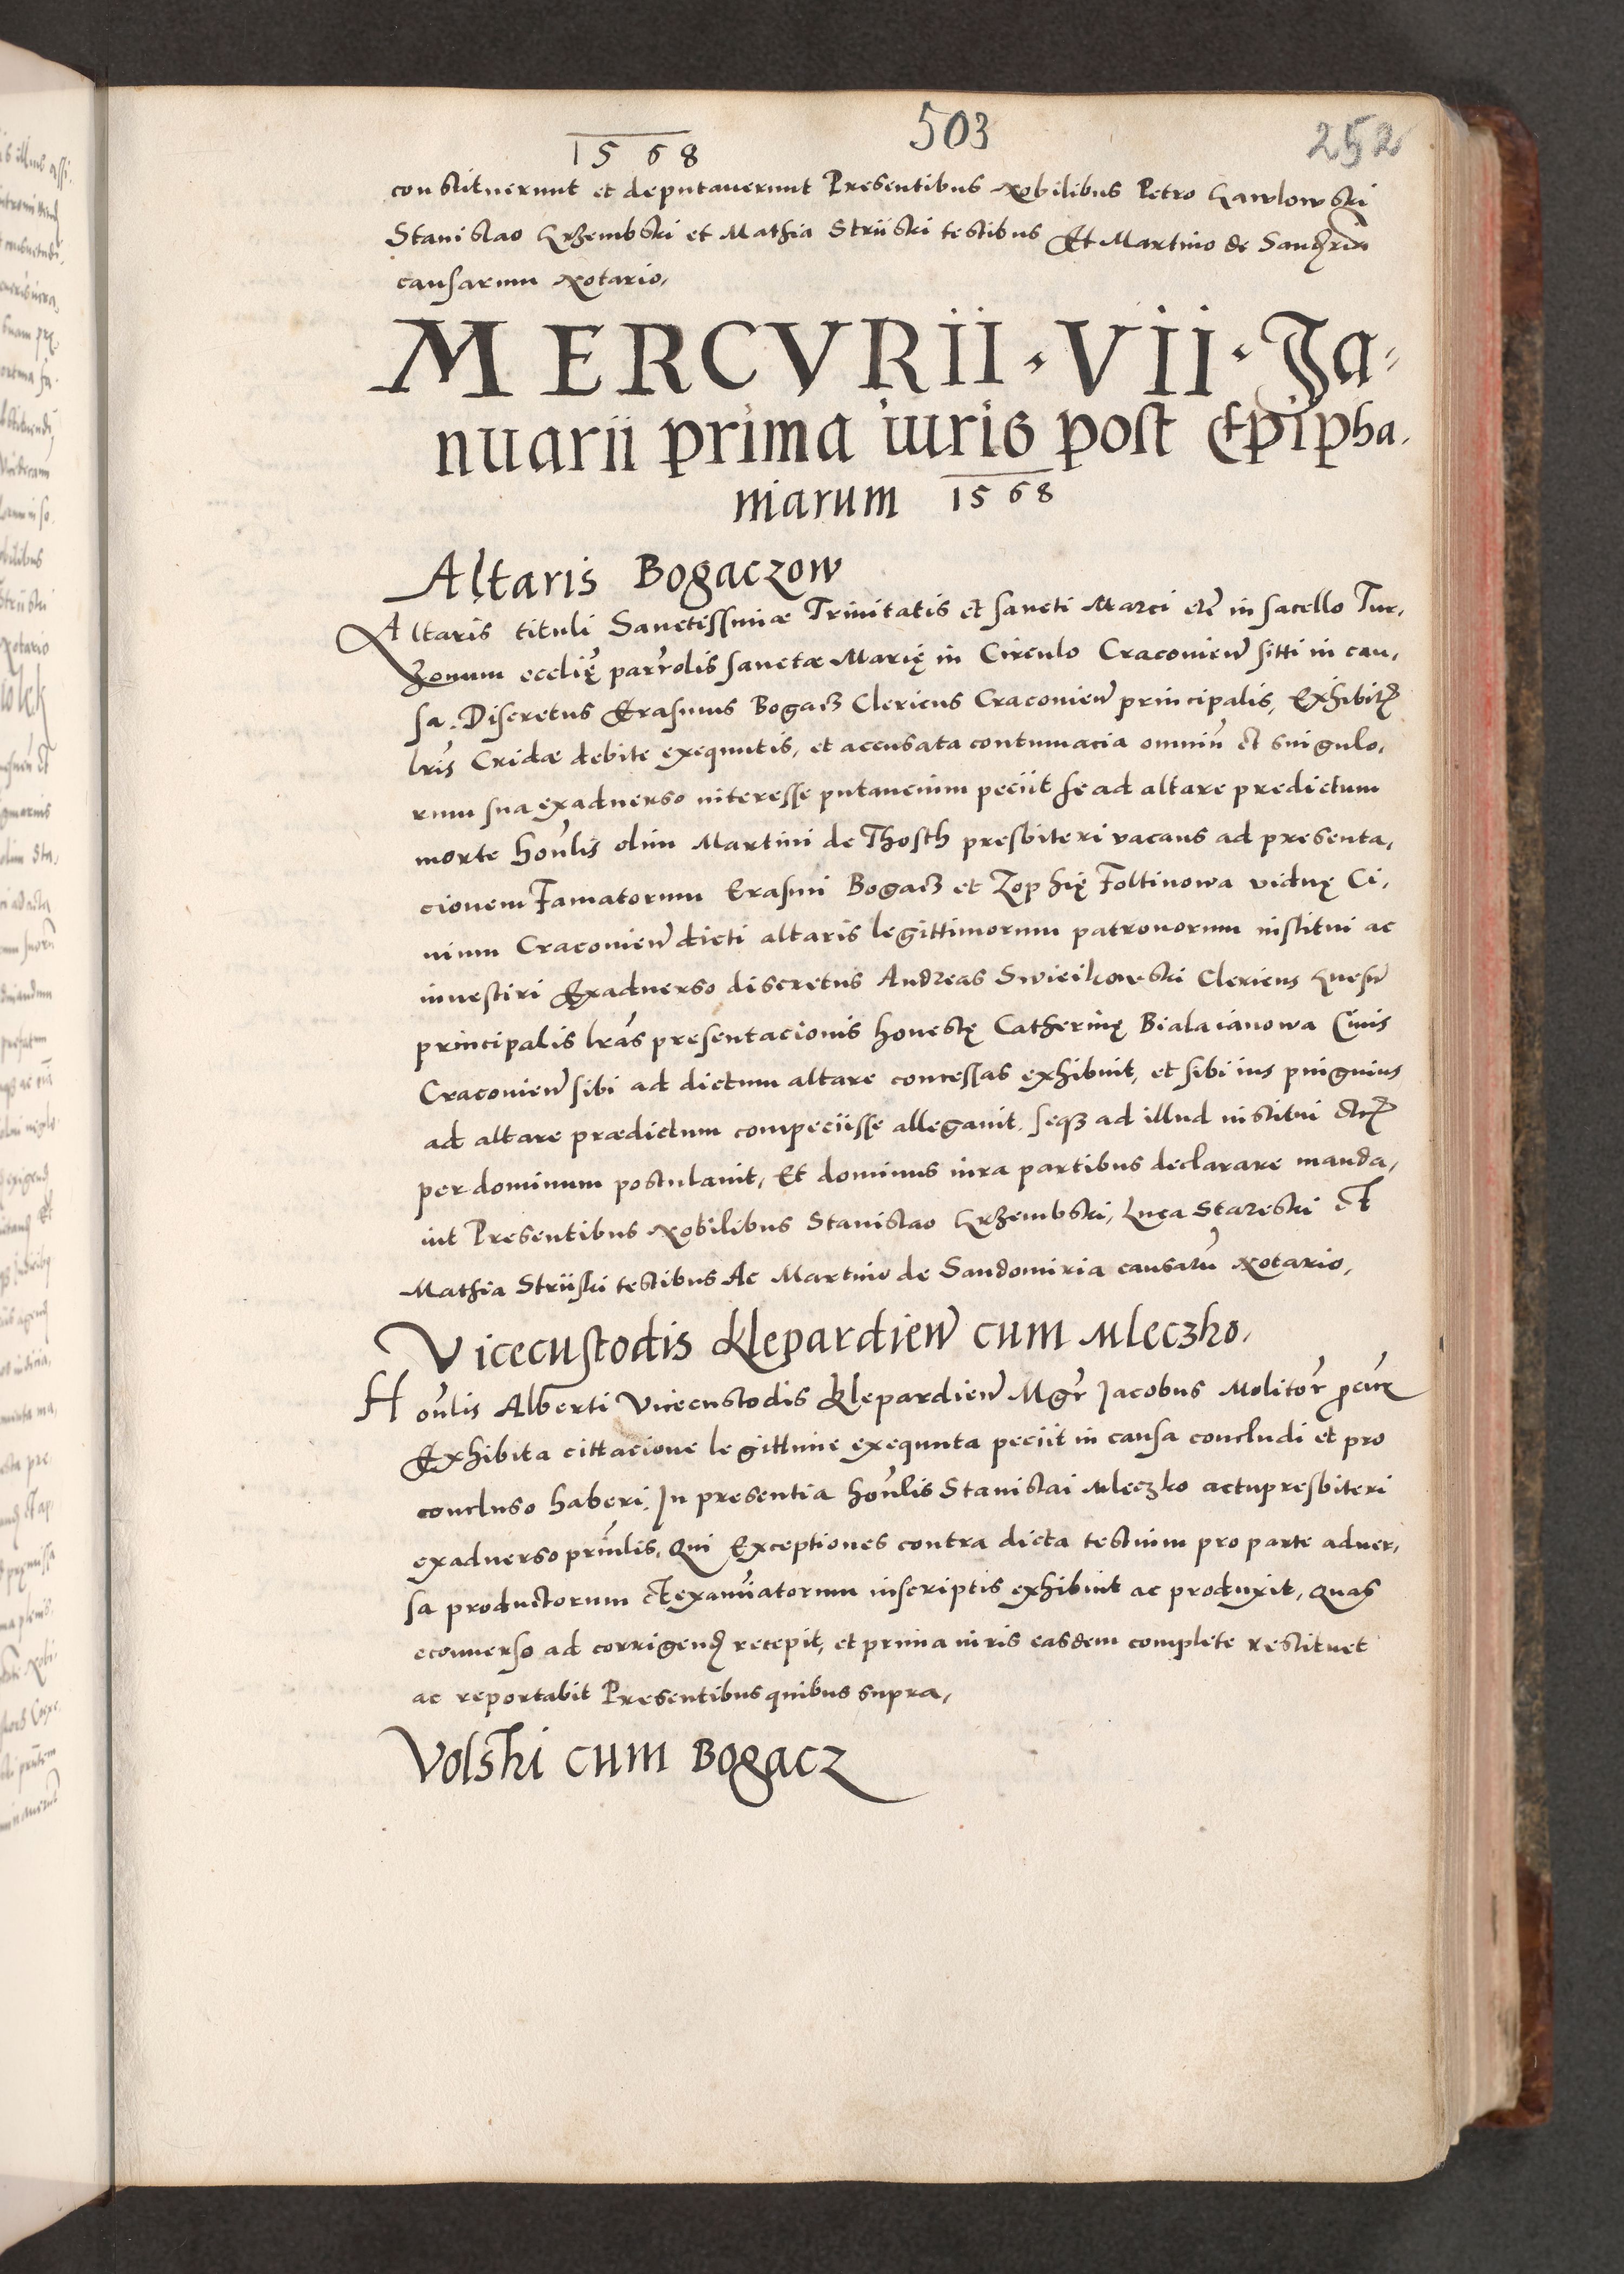 503
252
1568
constituerunt et deputauerunt Presentibus Nobilibus Petro Gawlowski
Stanislao Krzembski et Mathia Striiski testibus Et Martino de
causarum Notario,
MERCVRII · VII · Ja=
nuarii prima iuris post Epipha,
niarum 1568
Altaris Bogaczow
Altaris tituli Sanctissimæ Trinitatis et sancti Marci in sacello Tur,
zonum ecclię parrolis sanctæ Marię in Circulo Cracovień sitti in cau,
sa. Discretus Erasmus Bogacz Clericus Cracovień principalis, Exhibitꝭ
lris Cridæ debite exequutis, et accusata contumacia omniū et singulo,
rum sua exaduerso interesse putancium peciit se ad altare predictum
morte honlis olim Martini de Thosth presbiteri vacans ad presenta,
cionem Famatorum Erasmi Bogacz et Zophię Foltinowa viduę Ci,
uium Cracovień dicti altaris legittimorum patronorum institui ac
inuestiri Exaduerso discretus Andreas Swieikowski Clericus Gnesń
principalis lras presentacionis honestę Catherinę Biala ianowa Ciuis
Cracovień sibi ad dictum altare concessas exhibuit, et sibi ius pinguius
ad altare prædictum compeciisse allegauit, seqз ad illud institui etcꝭ
per dominum postulauit, Et dominus iura partibus declarare manda,
uit Presentibus Nobilibus Stanislao Krzembski, Luca Stareski et
Mathia Striiski testibus Ac Martino de Sandomiria causarū Notario,
Vicecustodis Klepardień cum Mleczko,
Honlis Alberti Vicecustodis Klepardień Mgr Jacobus Molitor procur
Exhibita cittacione legittime exequuta peciit in causa concludi et pro
concluso haberi, In presentia honlis Stanislai Mleczko actupresbiteri
exaduerso prinlis, Qui Exceptiones contra dicta testium pro parte aduer,
sa productorum et examinatorum inscriptis exhibuit ac produxit, Quas
econuerso ad corrigend recepit, et prima iuris easdem complete restituet
ac reportabit Presentibus quibus supra,
Volski cum Bogacz